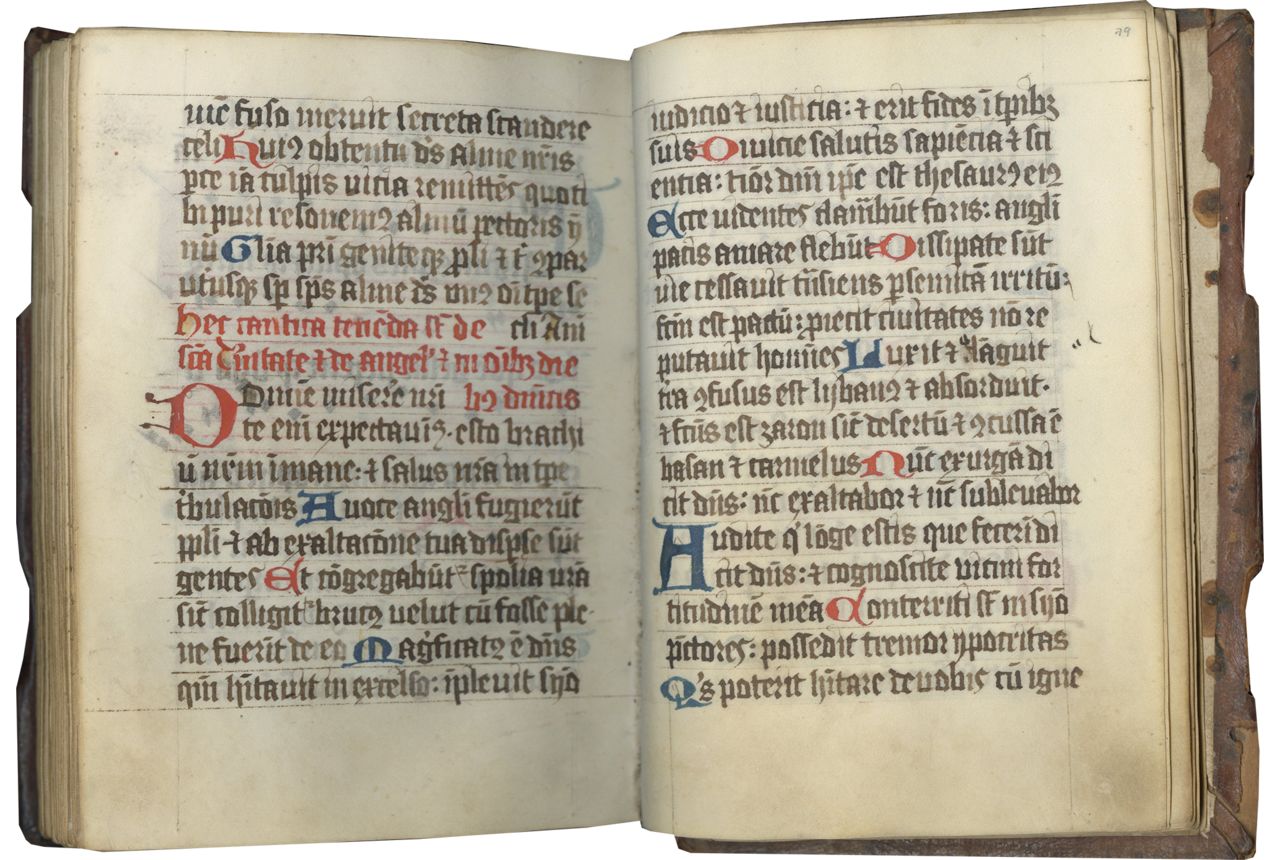 uiē fuso meruit secreta scandere
celi Huiꝰ obtentu ds alme nr̄is
pce iā culpis uicia remittēs quoti
bi puri resonemꝰ almū pectoris ȳ
nū Glia pr̄i geniteqȝ ꝓli ⁊ t̄ ꝯpar
utͥusqȝ sp̄ sp̄s alme ds̄ vnꝰ oī tp̄e se
hec cantica tenēda st̄ de cli Am̄
scā Tͥnitate ⁊ de angel' ⁊ in oībȝ die
Domine misere nr̄i bꝰ dnīcis
te enī expectauimꝰ. esto brachi
ū nr̄m ī mane: ⁊ salus nr̄a in tp̄e
tͥbulacōis A uoce angl̄i fugierūt
ppl̄i ⁊ ab exaltacōne tua dispse sūt
gentes Et cōgregabūtᷣ spolia urā
sic̄ colligitᷣ brucꝰ uelut cū fosse ple
ne fuerīt de eo Magͥficatꝰ ē dn̄s
qm̄ hītauit in excelso: īpleuit syō
79
iudicio ⁊ iusticia: ⁊ erit fides ī tp̄ibȝ
suis Diuicie salutis sapiēcia ⁊ sci
entia: timor dn̄i ip̄e est thesaurꝰ eiꝰ
Ecce uidentes clam̄abūt foris: angl̄i
pacis amare flebūt Dissipate sūt
uie cessauit trͣnsiens ꝑ semitā irritū:
fcm̄ est pactū: ꝓiecit ciuitates nō re
putauit hoīnes Luxit ⁊ elāguit
tr̄a ꝯfusus est lybanꝰ ⁊ absorduit.
⁊ fctūs est zaron sic̄ desertū ⁊ ꝯcussa ē
basan ⁊ carmelus Nūc exurgā di
cit dn̄s: nc̄ exaltabor ⁊ nc̄ subleuabor
Audite qͥ lōge estis que fecerī di
cit dn̄s: ⁊ cognoscite vicini for
titudinē meā Conterriti st̄ in syō
pctores: possedit tremor ypocritas
Qͥs poterit hītare de uobis cū igne